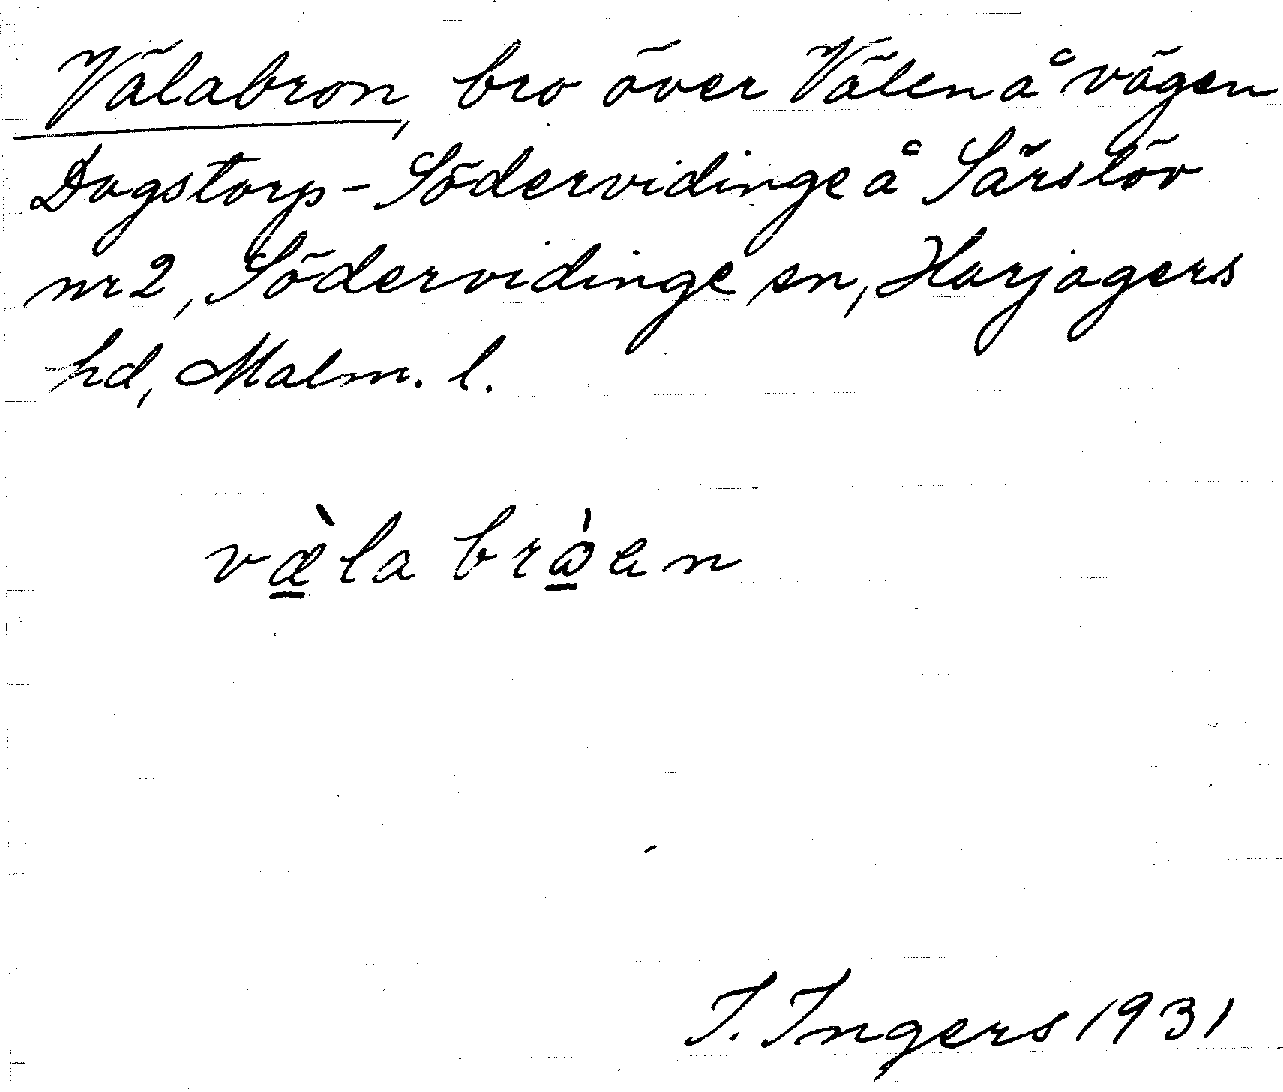 Välabron, bro över Välen å vägen
Dagstorp - Södervidinge å Särslöv
nr 2, Södervidinge sn, Harjagers
hd, Malm. l.
væ̱̀la brὼ̱en
I. Ingers 1931